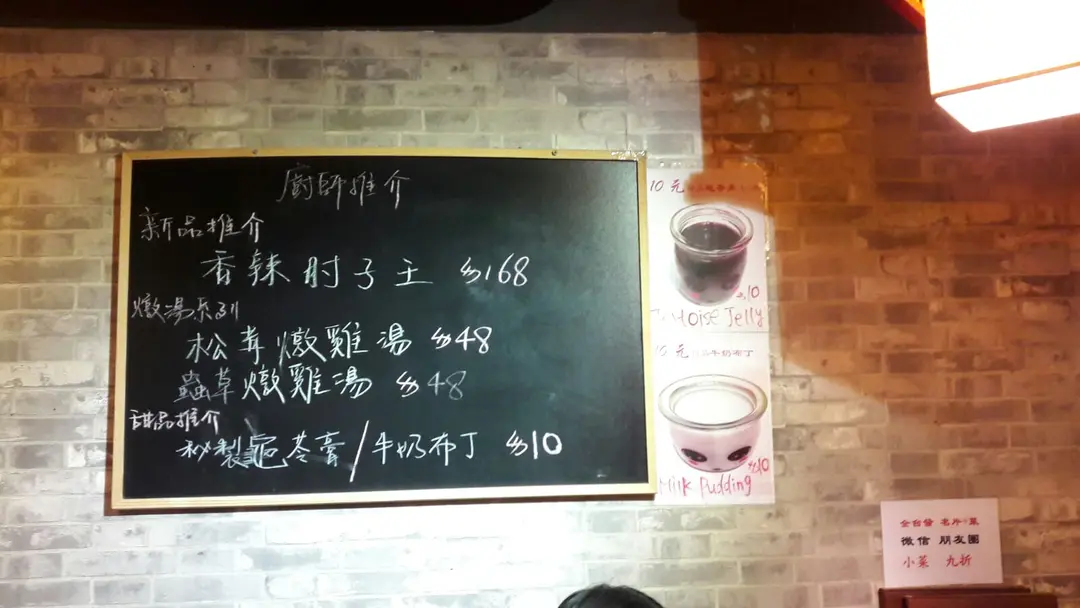 廚師推介
新品推介
香辣肘子王 $168
燉湯系列
松茸燉雞湯 $48
蟲草燉雞湯 $48
甜品推介
秘製龜苓膏/牛奶布丁 $10
10元
$10
Tortoise Jelly
元 牛奶布丁
$10
Milk Pudding
微信 朋友圈
小菜 九折